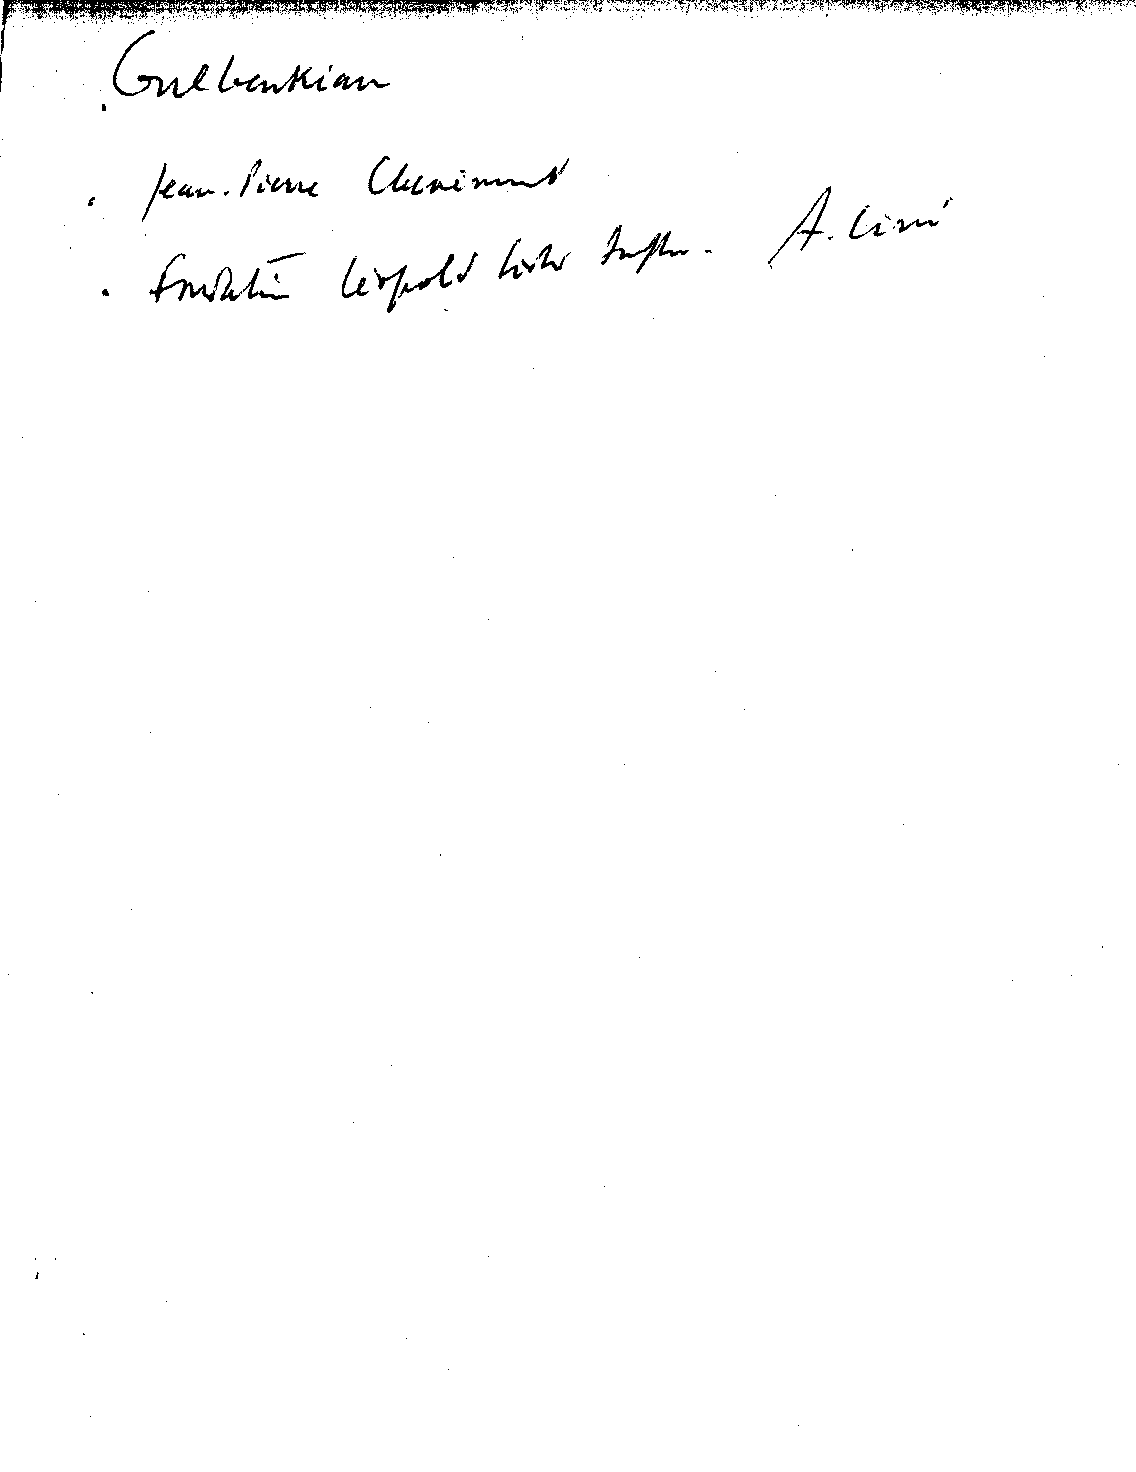 Gulbenkian
. Jean-Pierre Chevènement
. Fondation Léopold Sédar Senghor. A. Cissé